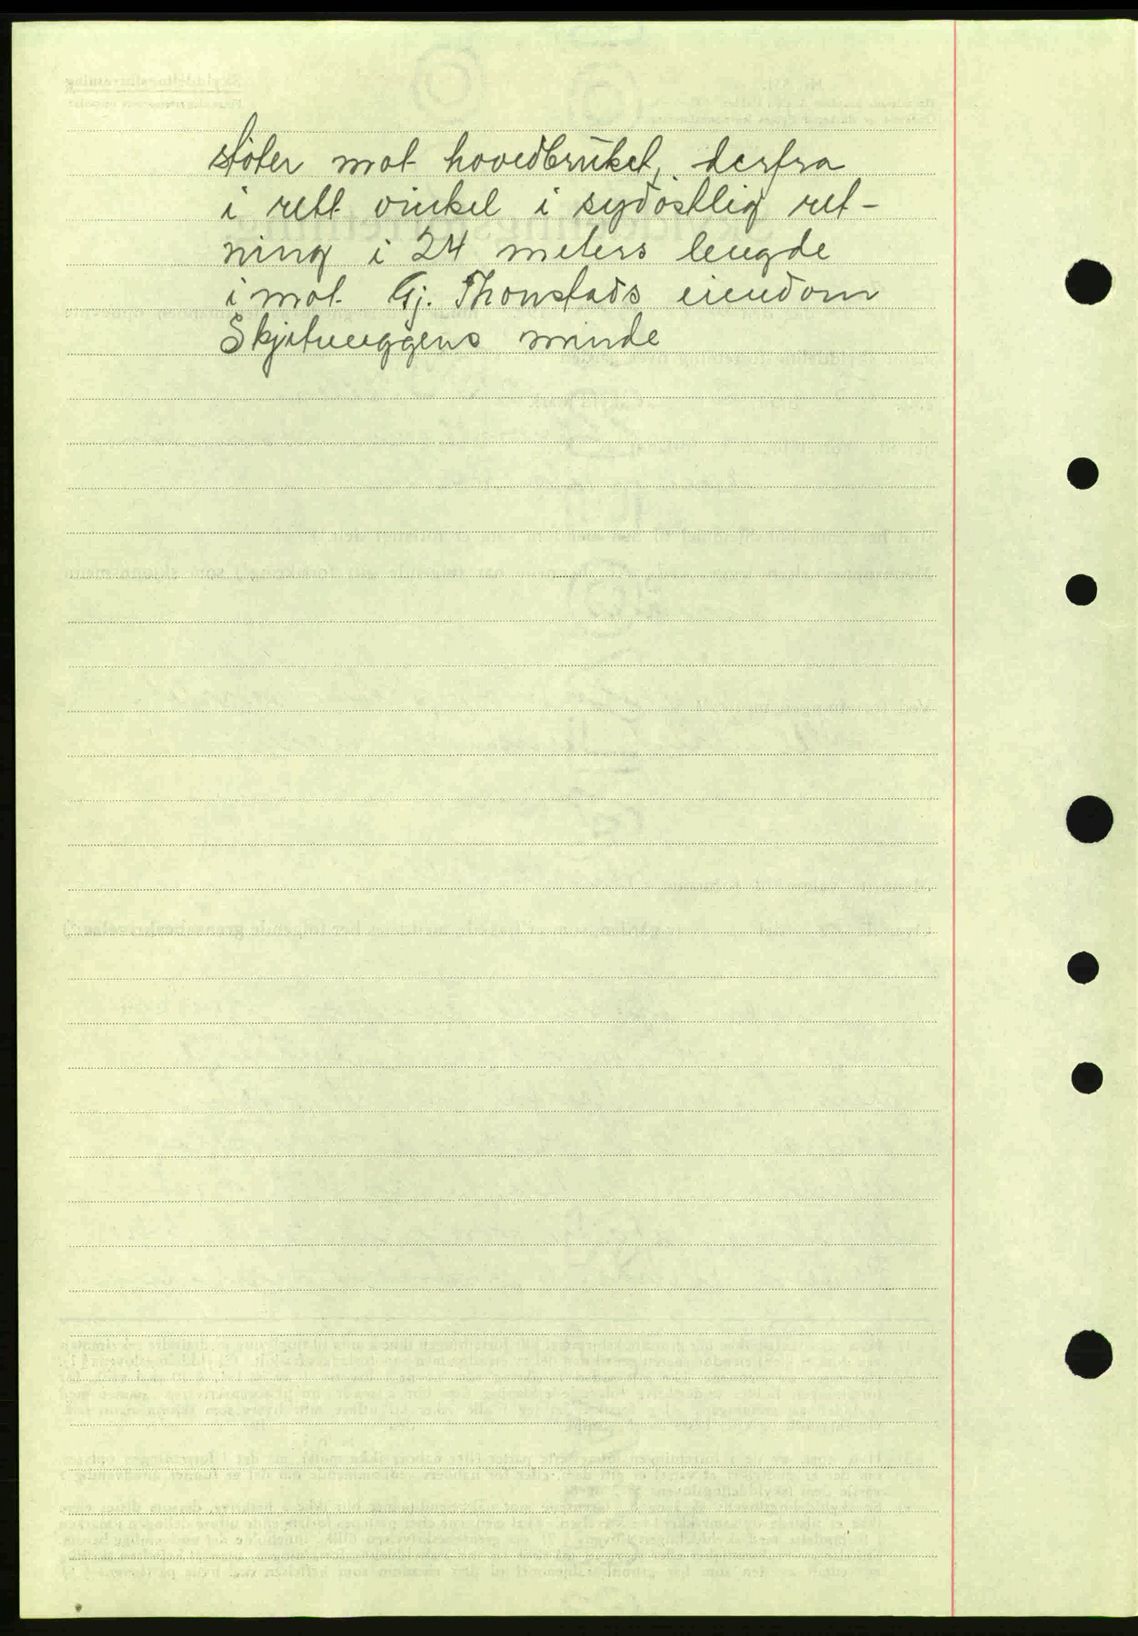 støter mot hovedbruket, derfra
i rett vinkel i sydøstlig ret-
ning i 24 meters lengde
i mot Gj. Thonstads eiendom
minde